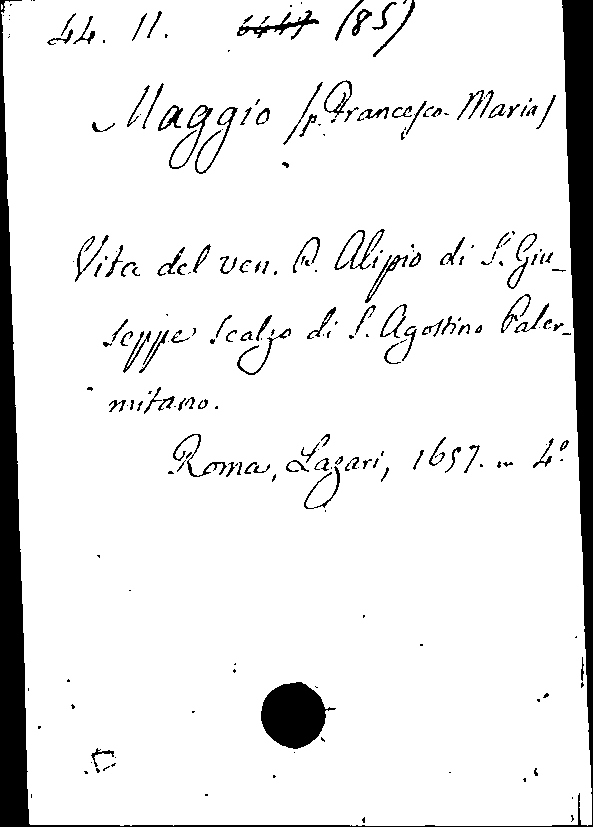 44. 11. 6447 (85)
Maggio (p. Francesco Maria)
Vita del ven. P. Alipio di S. Giu-
seppe scalzo di S. Agostino Paler-
mitano.
Roma, Lazari, 1657. in 4º